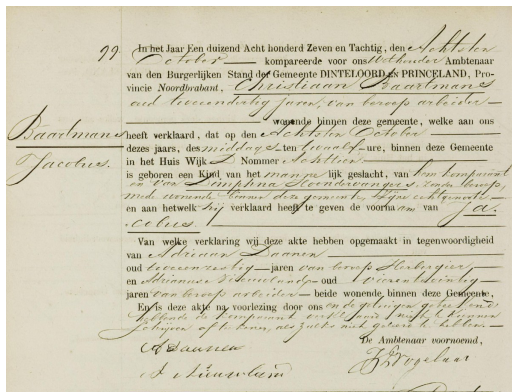 99 In het Jaar Een duizend Acht honderd Zeven en Tachtig, den Achtsten
October kompareerde voor ons Wethouder Ambtenaar
van den Burgerlijken Stand der Gemeente DINTELOORD EN PRINCELAND, Pro-
vincie Noordbrabant, Christiaan Baartmans
oud jaren, van beroep arbeider
wonende binnen deze gemeente, welke aan ons
Baartmans heeft verklaard, dat op den Achtsten October
Jacobus. dezes jaars, des middags ten twaalf ure, binnen deze Gemeente
in het Huis Wijk D Nommer Achttien
is geboren een Kind van het mannelijk geslacht, van hem komparant
en van Dimphna zonder beroep,
mede wonende binnen deze gemeente, zijne echtgenoote
en aan hetwelk hij verklaard heeft te geven de voornaam van Ja-
cobus.
Van welke verklaring wij deze akte hebben opgemaakt in tegenwoordigheid
van Adriaan Daanen
oud jaren van beroep Herbergier,
en Adrianus oud
jaren van beroep arbeider beide wonende binnen deze Gemeente,
En is deze akte na voorlezing door ons en de getuigen geteekend
hebbende de komparant verklaard niet te kunnen
schrijven of teekenen, als zulks niet geleerd te hebben
De Ambtenaar voornoemd,
A Daanen
Vogelaar